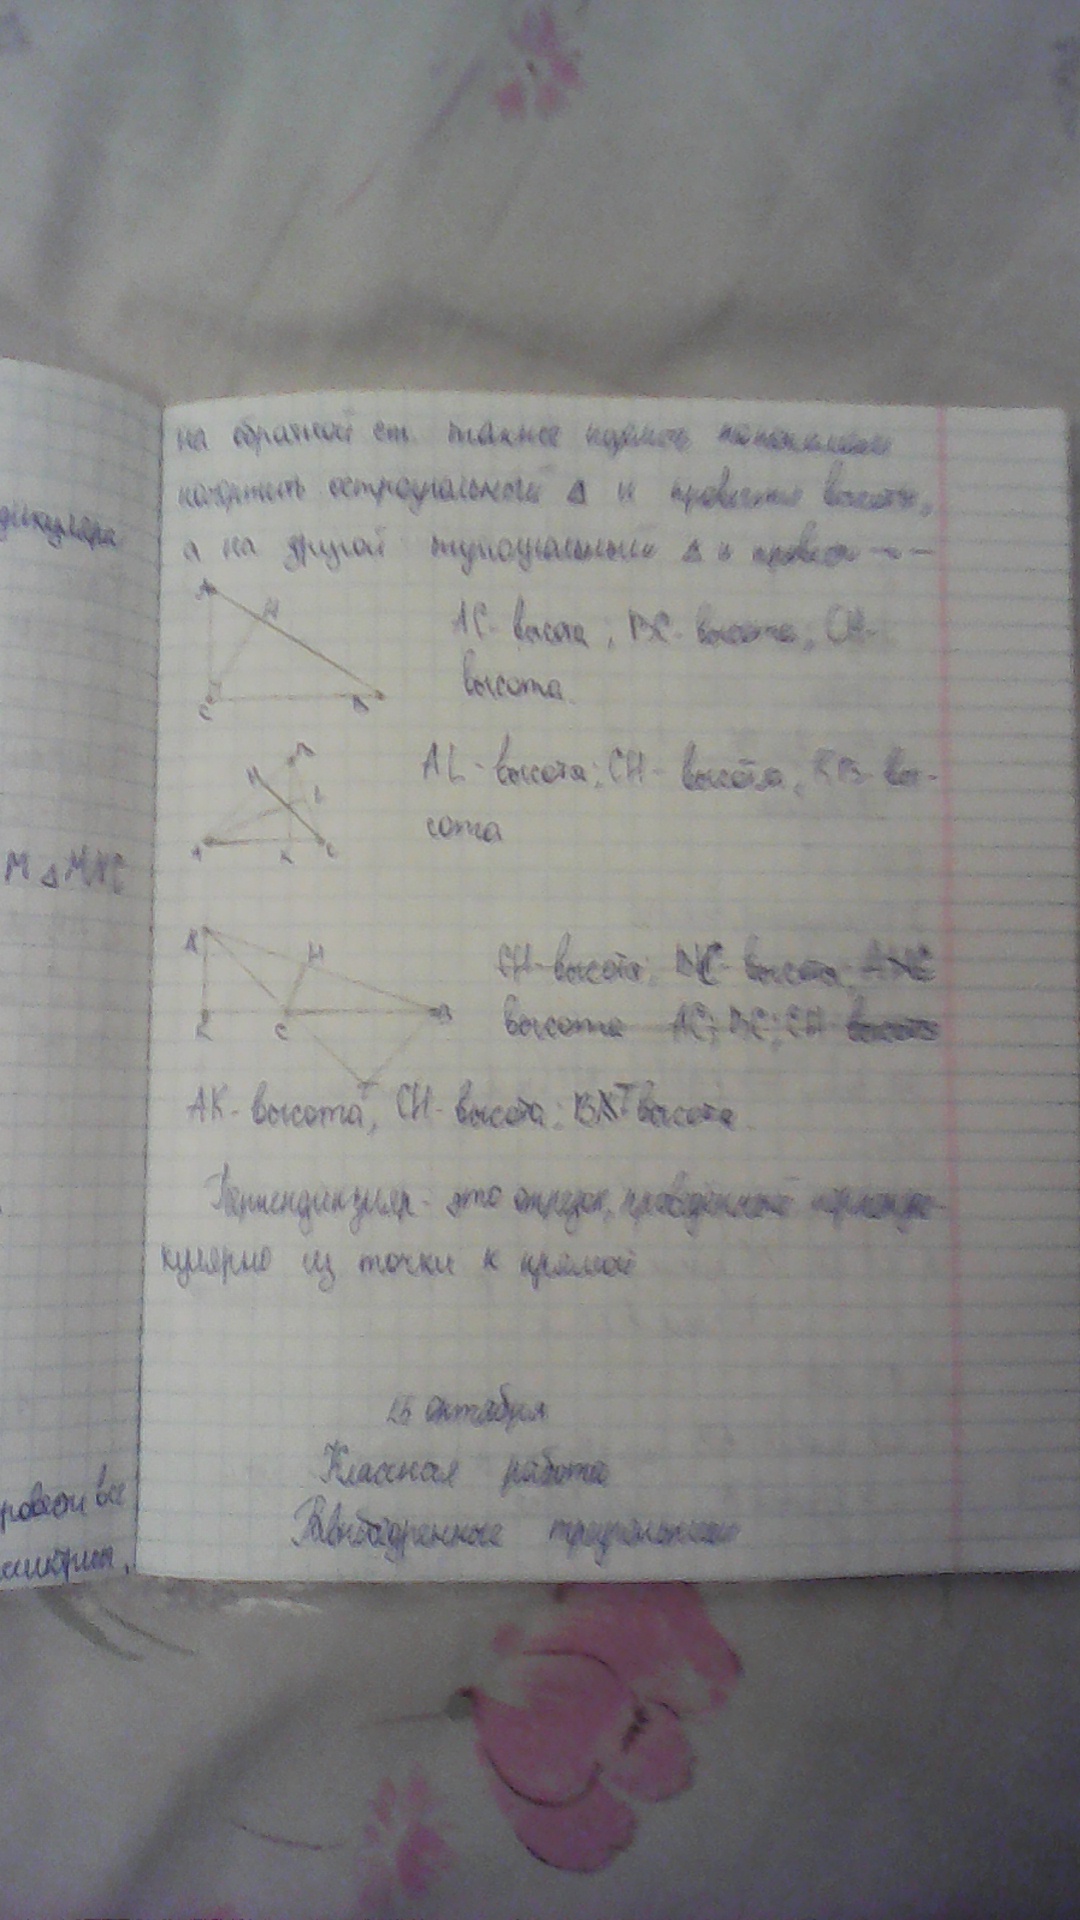 дикуляра
М △ MNC
ровести все
на обратной ст. также
остроугольный △ и провести высоты,
а на другой тупоугольный △ и провести — " —
A
H
C
B
AC - высота ; BC - высота ; CH -
высота.
B
H
L
A
K
C
AL - высота ; CH - высота ; KB - вы-
сота
A
H
K
C
B
T
CH - высота ; BC - высота ;
высота AC ; BC ; CH - высота
AK - высота, CH - высота ; BT высота
Перпендикуляр - это отрезок, проведённый перпенди-
кулярно из точки к прямой
октября
Классная работа